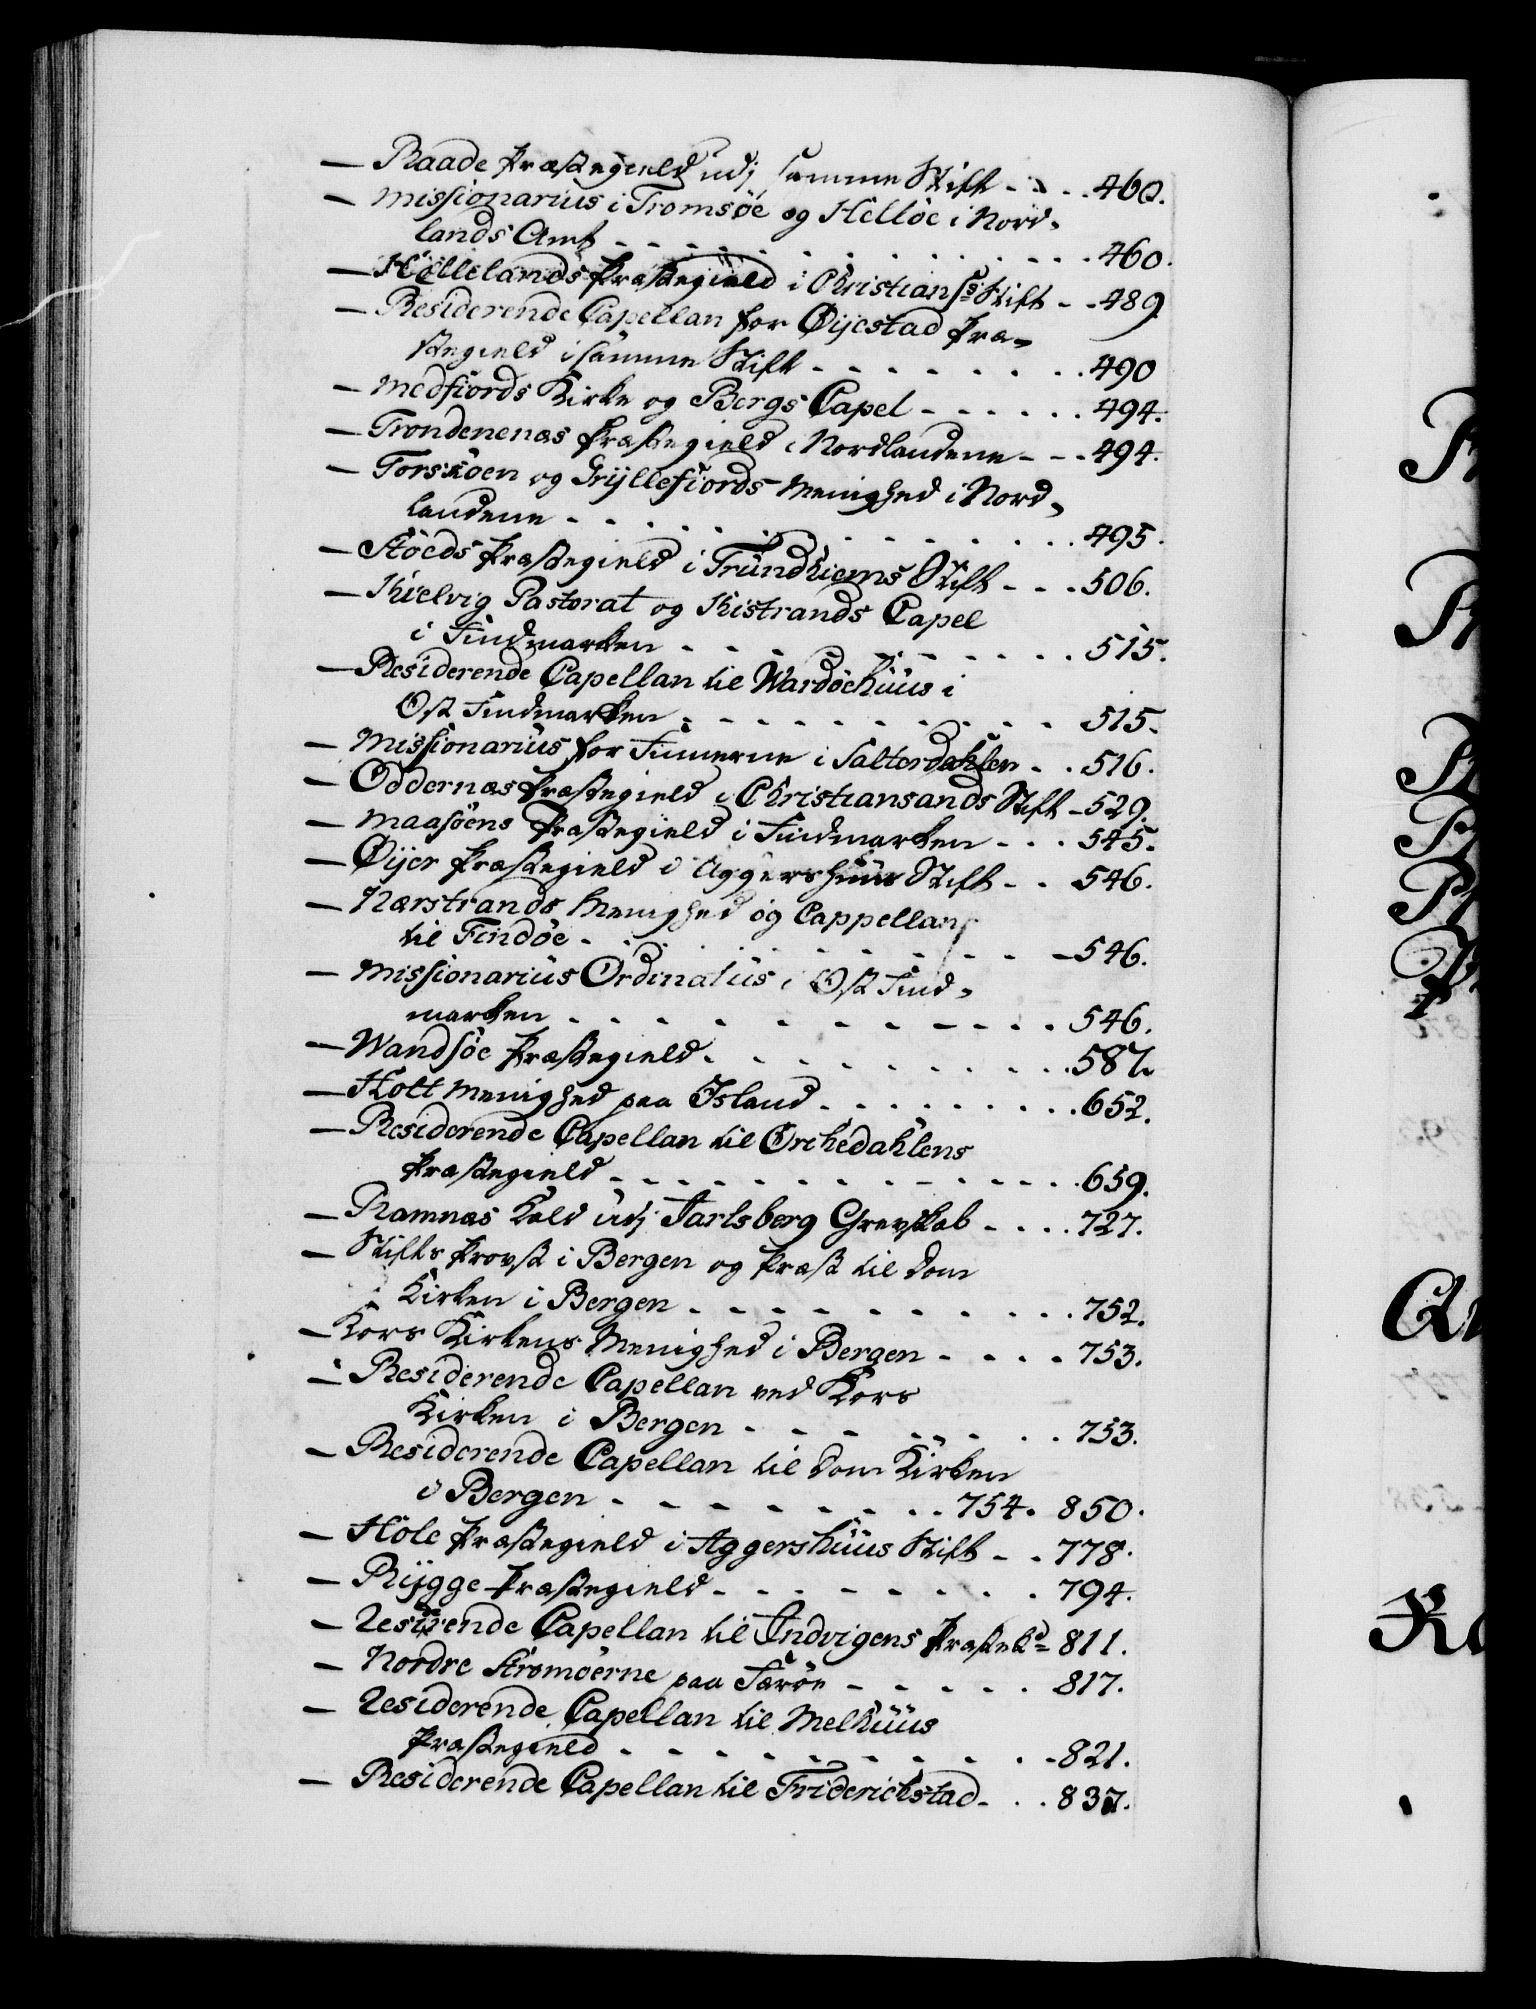 — Raade Præstegield udj samme Stift - - - 460.
— Missionarius i Tromsöe og Hellöe i Nord-
lands Amt - - - - - - - - - - 460.
— Hellelands Præstegield i Christians. Stift - - 489
— Residerende Capellan for Øijestad Præ-
stegield i samme Stift - - - - - - - - 490
— Medfiords Kirke og Bergs Capel - - - - - - 494.
— Trondenæs Præstegield i Nordlandene - - - 494.
— Torsköen og Gryllefiords Menighed i Nord-
landene - - - - - - - - - - - 495.
— Stöeds Præstegield i Trundhiems Stift - - - 506.
— Kielvig Pastorat og Kistrands Capel
i Findmarken - - - - - - - - - - 515.
— Residerende Capellan til Wardöehuus i
Ost Findmarken - - - - - - - - - - 515.
— Missionarius for Finnerne i Salterdahlen - - 516.
— Oddernæs Præstegield i Christiansands Stift - 529.
— Maasöens Præstegield i Findmarken - - - 545.
— Øijer Præstegield i Aggershuus Stift - - 546.
— Nærstrands Menighed og Cappellan
til Findöe - - - - - - - - - - 546.
— Missionarius Ordinatus i Ost Find-
marken - - - - - - - - - - - - 546.
— Wandsöe Præstegield - - - - - - - - - 587.
— Holt Menighed paa Island - - - - - - - - 652.
— Residerende Capellan til Orchedahlens
Præstegield - - - - - - - - - - - - 659.
— Ramnæs Kald udj Jarlsberg Grevskab - - - - 727.
— Stifts Provst i Bergen og Præst til Dom
Kirken i Bergen - - - - - - - - - - 752.
— Kors Kirkens Menighed i Bergen - - - - 753.
— Residerende Capellan ved Kors
Kirken i Bergen - - - - - - - - 753.
— Residerende Capellan til Dom Kirken
i Bergen - - - - - - - - - 754. 850.
— Hole Præstegield i Aggershuus Stift - - 778.
— Rygge Præstegield - - - - - - - - - 794.
— Residerende Capellan til Indvigens Præstekd 811.
— Nordre Strömöerne paa Færöe - - - - - 817.
— Residerende Capellan til Melhuus
Præstegield - - - - - - - - - - 821.
— Residerende Capellan til Friderichstad - - - 837.